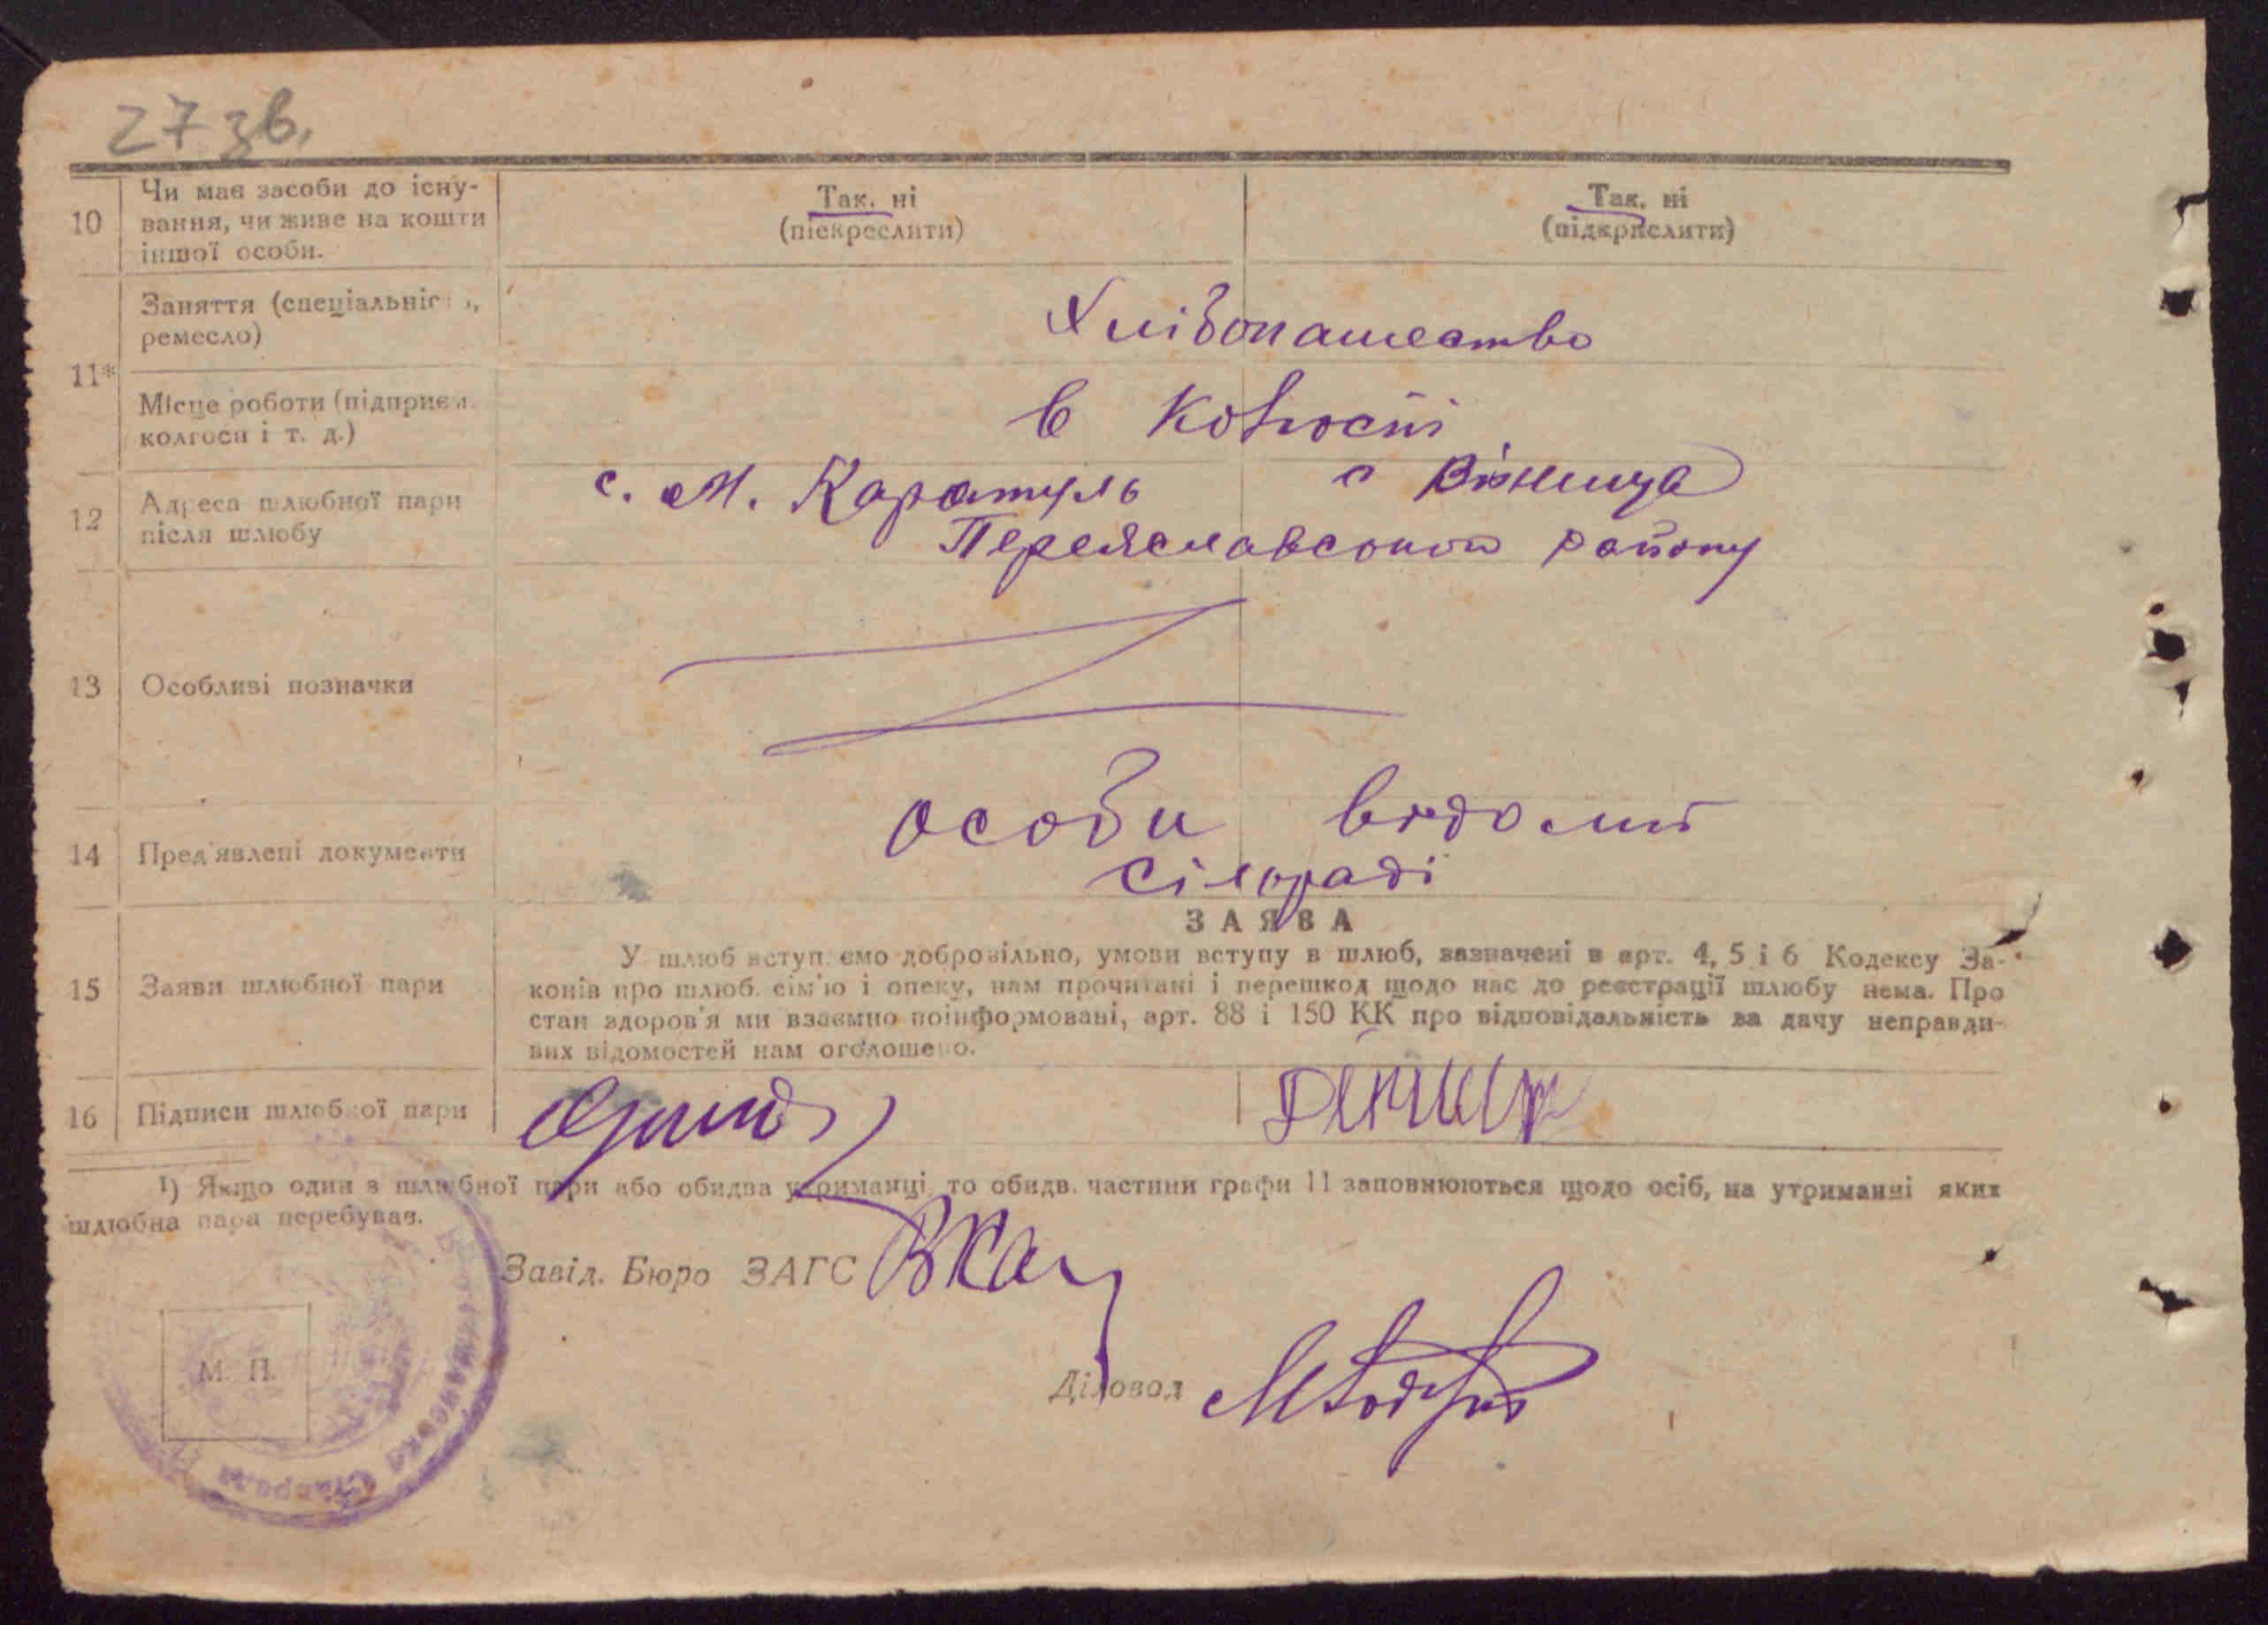 27 зв.
10
Чи має засоби до існу-
вання, чи живе на кошти
іншої особи.
Так, ні
(піекреслити)
Так, ні
(підкрпслити)
11*
Заняття (спеціальніс ,
ремесло)
Хлібопашество
Місце роботи (підприєм.
колгосп і т. д.)
в Колгоспі
12
Адреса шлюбної пари
після шлюбу
с. М. Каратуль с Віниця
Переяславського району
13
Особливі позначки
14
Пред'явлені документи
особи відомі
сілораді
15
Заяви шлюбної пари
ЗАЯВА
У шлюб вступ ємо добровільно, умови вступу в шлюб, зазначені в арт. 4, 5 і 6 Кодексу За-
конів про шлюб. сім'ю і опеку, нам прочитані і перешкод щодо нас до реєстрації шлюбу нема. Про
стан здоров'я ми взаємно поінформовані, арт. 88 і 150 КК про відповідальність за дачу неправди-
вих відомостей нам оголошено.
16
Підписи шлюбної пари
¹) Якщо один з шлюбної пари або обидва утриманці то обидв. частини графи 11 заповнюються щодо осіб, на утриманні яких
шлюбна пара перебуває.
Завід. Бюро ЗАГС
М. П.
Діловод
Сільрада